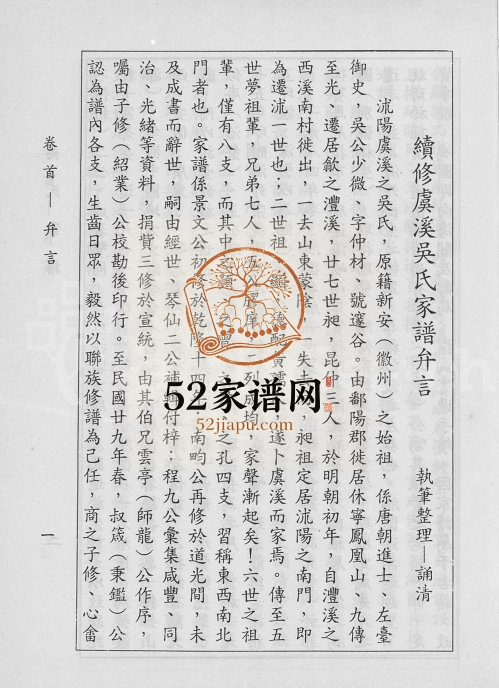 續修虞溪吳氏家譜弁言
執筆整理—誦清
沭陽虞溪之吳氏，原籍新安（徽州）之始祖，係唐朝進士、左臺
御史，吳公少微、字仲材、號邃谷。由鄱陽郡徙居休寧鳳凰山、九傳
至光、遷居歙之澧溪，廿七世昶，昆仲三人，於明朝初年，自澧溪之
西溪南村徙出，一去山東蒙陰 一失 昶祖定居沭陽之南門，即
為遷沭一世也；二世祖 配黃孺 遂卜虞溪而家焉。傳至五
世夢祖輩，兄弟七人，五 列成均，家聲漸起矣！六世之祖
輩，僅有八支，而其中 之孔四支，習稱東西南北
門者也。家譜係景文公初修於乾隆十四 南畇公再修於道光間，未
及成書而辭世，嗣由經世、琴仙二公補 付梓；程九公彙集咸豐、同
治、光緒等資料，捐貲三修於宣統，由其伯兄雲亭（師龍）公作序，
囑由子修（紹業）公校勘後印行。至民國廿九年春，叔箴（秉鑑）公
認為譜內各支，生齒日眾，毅然以聯族修譜為己任，商之子修、心畬
卷首—弁言
一
52家谱网
52jiapu.com